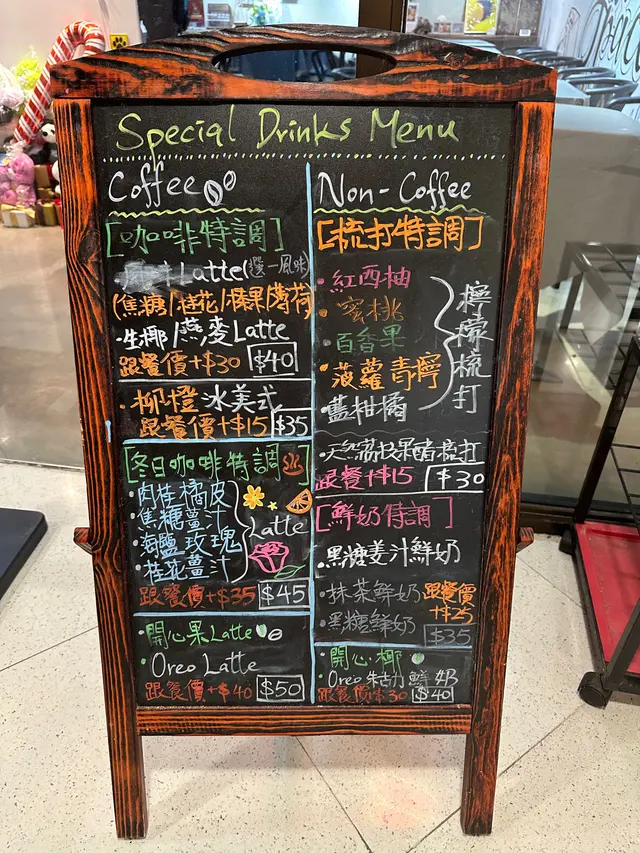 Special Drinks Menu
Coffee
[咖啡特調]
Latte(選一風味)
(焦糖/桂花/榛果/薄荷
·生椰/燕麥Latte
跟餐價+$30 $40
·柳橙冰美式
跟餐價+$15 $35
[冬日咖啡特調]
·肉桂橘皮
·焦糖薑汁
·海鹽玫瑰
·桂花薑汁
Latte
跟餐價+$35 $45
·開心果Latte
·Oreo Latte
跟餐價+$40 $50
Non-Coffee
[梳打特調]
·紅西柚
·蜜桃
·百香果
·菠蘿青檸
·藍柑橘
檸檬梳打
·天然荔枝果醋梳打
跟餐+$15 $30
[鮮奶特調]
·黑糖姜汁鮮奶
·抹茶鮮奶
·黑糖鮮奶
跟餐價
+$25
$35
·開心椰
·Oreo 朱古力鮮奶
跟餐價+$30 $40